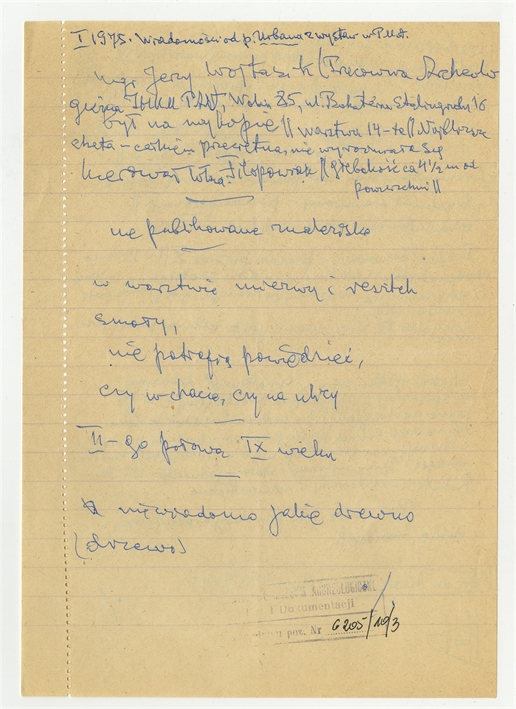 I 1975. Wiadomości od p. Urbana z wystaw w P.M.A.
mgr Jerzy Wojtasik (Pracownia Archeolo
giczna IHKM PAN, Wolin 85, ul. Bohaterów Stalingradu 16
był na wykopie || warstwa 14-te || Najbliższa
chata – całkiem przeciętna, nie wyróżniała się
kierował Wła. Filipowiak || głębokość ca 4½ m od
powierzchni ||
nie publikowane znalezisko
w warstwie mierzwy i resztek
smoły,
nie potrafią powiedzieć,
czy w chacie, czy na ulicy
II-ga połowa IX wieku
nie wiadomo jakie drewno
(drzewo)
ARCHEOLOGICZNE
Dokumentacji
poz. Nr 6205/10/3